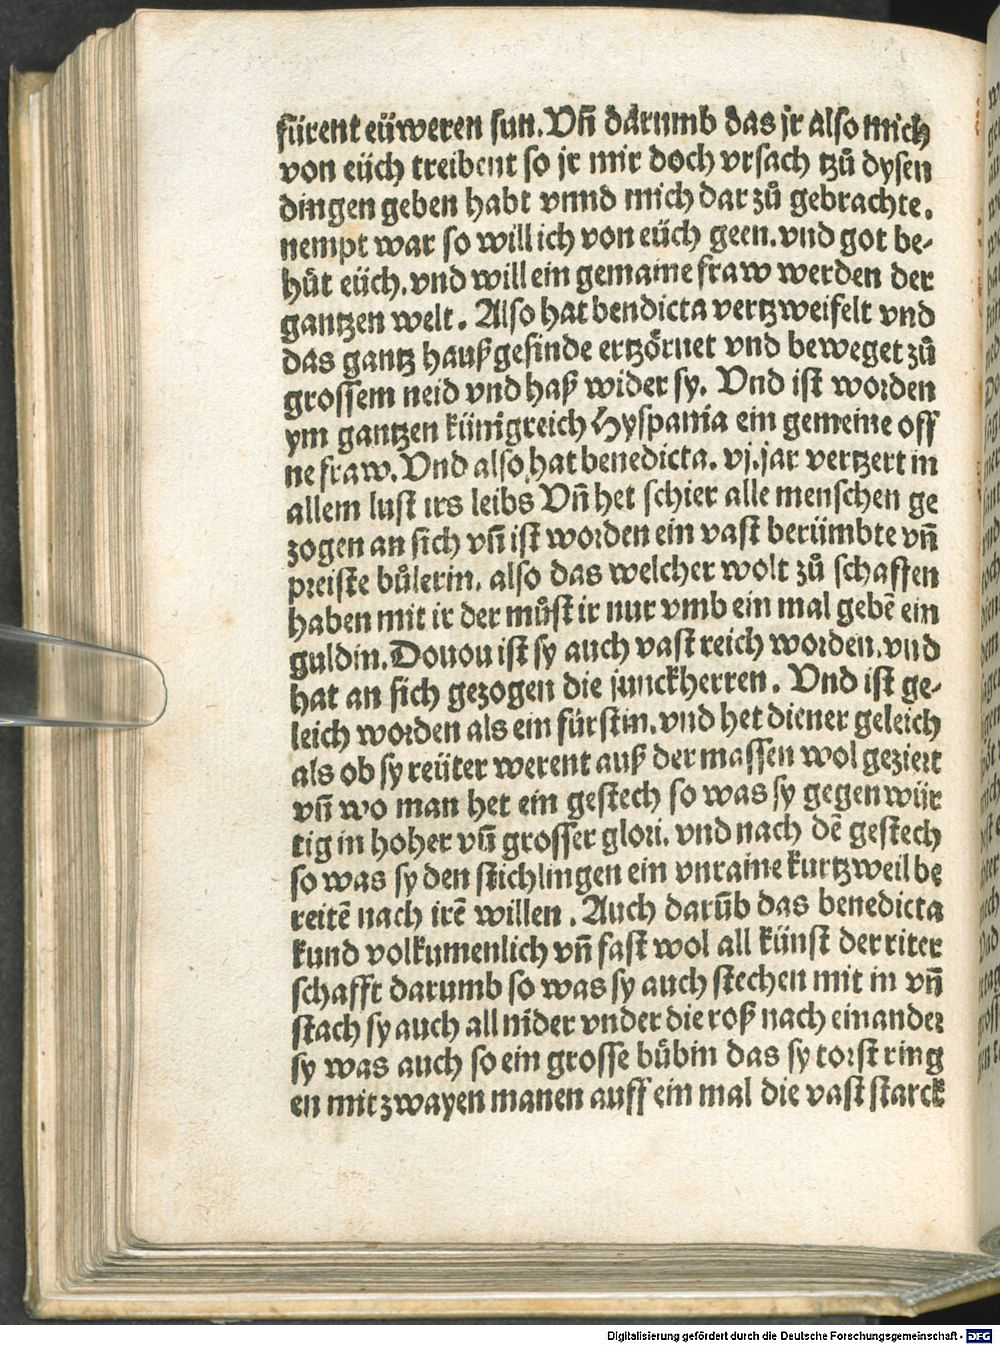 fürent eüweren sun. Vñ dărumb das jr also mich
von eüch treibent so jr mir doch vrsach tzů dysen
dingen geben habt vnnd mich dar zů gebrachte.
nempt war so will ich von eüch geen. vnd got be-
hůt eüch. vnd will ein gemaine fraw werden der
gantzen welt. Also hat bendicta vertzweifelt vnd
das gantz hauß gesinde ertzörnet vnd beweget zů
grossem neid vnd haß wider sy. Vnd ist worden
ym gantzen künigreich Hyspania ein gemeine off
ne fraw. Vnd also hat benedicta. vj. jar vertzert in
allem lust irs leibs Vñ het schier alle menschen ge
zogen an sich vñ ist worden ein vast berümbte vñ
preiste bůlerin. also das welcher wolt zů schaffen
haben mit ir der můst ir nur vmb ein mal gebē ein
guldin. Douou ist sy auch vast reich worden. vnd
hat an sich gezogen die junckherren. Vnd ist ge-
leich worden als ein fürstin. vnd het diener geleich
als ob sy reüter werent auß der massen wol geziert
vñ wo man het ein gestech so was sy gegenwür
tig in hoher vñ grosser glori. vnd nach dē gestech
so was sy den stichlingen ein vnraine kurtzweil be
reitē nach irē willen. Auch darūb das benedicta
kund volkumenlich vñ fast wol all künst der riter
schafft darumb so was sy auch stechen mit in vñ
stach sy auch all nider vnder die roß nach einander
sy was auch so ein grosse bůbin das sy torst ring
en mit zwayen manen auff ein mal die vast starck
Digitalisierung gefördert durch die Deutsche Forschungsgemeinschaft - DFG